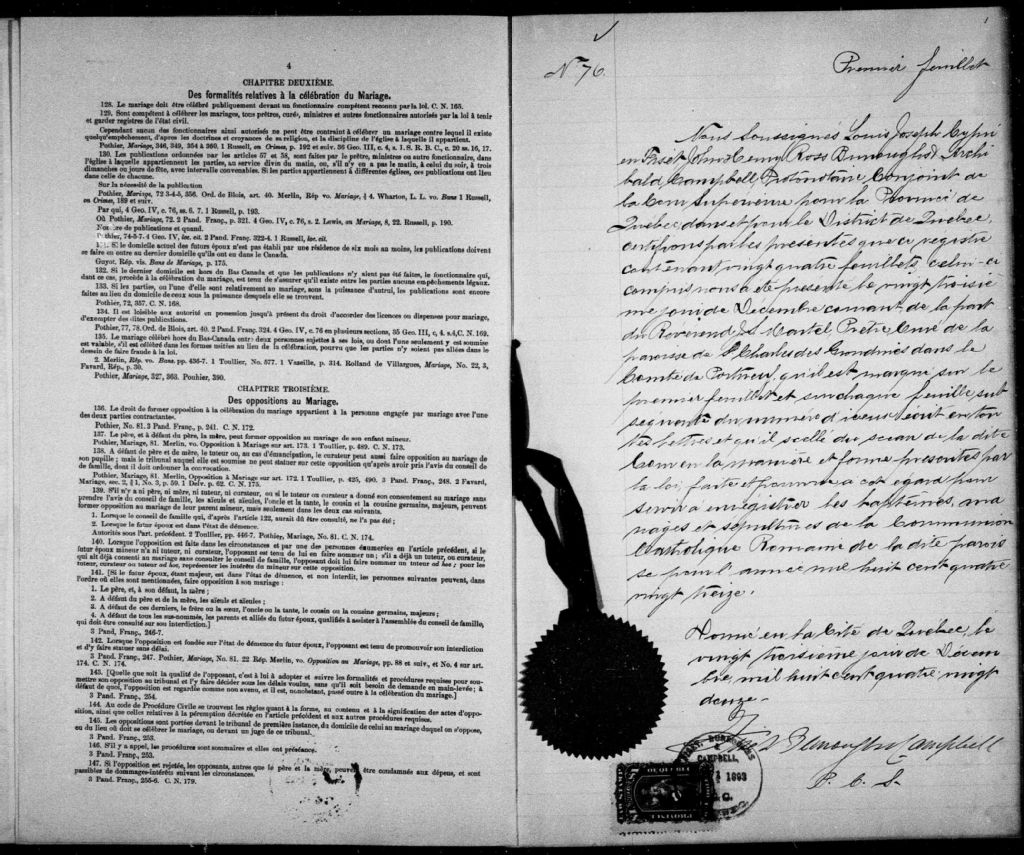 4
CHAPITRE DEUXIÈME.
Des formalités relatives à la célébration du Mariage.
128. Le mariage doit être célébré publiquement devant un fonctionnaire compétent reconnu par la loi. C. N. 165.
129. Sont compétents à célébrer les mariages, tous prêtres, curés, ministres et autres fonctionnaires autorisés par la loi à tenir
et garder registres de l'état civil.
Cependant aucun des fonctionnaires ainsi autorisés ne peut être contraint à célébrer un mariage contre lequel il existe
quelqu'empêchement, d'après les doctrines et croyances de sa religion, et la discipline de l'église à laquelle il appartient.
Pothier, Mariage, 346, 349, 354 à 360, 1 Russell, on Crimes, p. 192 et suiv. 36 Geo. III, c. 4, s. 1. S. R. B. C., c. 20 ss. 16, 17.
130. Les publications ordonnées par les articles 57 et 58, sont faites par le prêtre, ministre ou autre fonctionnaire, dans
l'église à laquelle appartiennent les parties, au service divin du matin, ou, s'il n'y en a pas le matin, à celui du soir, à trois
dimanches ou jours de fête, avec intervalle convenables. Si les parties appartiennent à différentes églises, ces publications ont lieu
dans celle de chacune.
Sur la nécessité de la publication
Pothier, Mariage, 72 3-4-5, 356. Ord. de Blois, art. 40. Merlin, Rép vo. Mariage, § 4. Wharton, L. L. vo. Bans 1 Russell,
on Crimes, 189 et suiv.
Par qui, 4 Geo. IV, c. 76, ss. 6. 7. 1 Russell, p. 193.
Où Pothier, Mariage, 72. 2 Pand. Franç., p. 321. 4 Geo. IV, c. 76, s. 2. Lewis, on Mariage, 8, 22. Russell, p. 190.
Nombre de publications et quand.
Pothier, 74-5-7. 4 Geo. IV, loc. cit. 2 Pand. Franç. 322-4. 1 Russell, loc. cit.
131. Si le domicile actuel des futurs époux n'est pas établi par une résidence de six mois au moins, les publications doivent
se faire en outre au dernier domicile qu'ils ont eu dans le Canada.
Guyot, Rép. vis. Bans de Mariage, p. 175.
132. Si le dernier domicile est hors du Bas Canada et que les publications n'y aient pas été faites, le fonctionnaire qui,
dans ce cas, procède à la célébration du mariage, est tenu de s'assurer qu'il existe entre les parties aucuns empêchements légaux.
133. Si les parties, ou l'une d'elle sont relativement au mariage, sous la puissance d'autrui, les publications sont encore
faites au lieu du domicile de ceux sous la puissance desquels elle se trouvent.
Pothier, 72, 357. C. N. 168.
134. Il est loisible aux autorités en possession jusqu'à présent du droit d'accorder des licences ou dispenses pour mariage,
d'exempter des dites publications.
Pothier, 77, 78. Ord. de Blois, art. 40. 2 Pand. Franç. 324. 4 Geo. IV, c. 76 en plusieurs sections, 35 Geo. III, c, 4. s.4, C. N. 169.
135. Le mariage célébré hors du Bas-Canada entre deux personnes sujettes à ses lois, ou dont l'une seulement y est soumise
est valable, s'il est célébré dans les formes usitées au lieu de la célébration, pourvu que les parties n'y soient pas allées dans le
dessein de faire fraude à la loi.
2. Merlin, Rép. vo. Bans, pp. 436-7. 1 Toullier, No. 577. 1 Vazeille, p. 314. Rolland de Villargues, Mariage, No. 22, 3,
Favard, Rép., p. 30.
Pothier, Mariage, 327, 363. Pouhier, 390.
CHAPITRE TROISIÈME.
Des oppositions au Mariage.
136. Le droit de former opposition à la célébration du mariage appartient à la personne engagée par mariage avec l'une
des deux parties contractantes.
Pothier, No. 81. 3 Pand. Franç., p. 241. C. N. 172.
137. Le père, et à défaut du père, la mère, peut former opposition au mariage de son enfant mineur.
Pothier, Mariage, 81. Merlin, vo. Opposition à Mariage sur art. 173. 1 Toullier, p. 489. C. N. 173.
138. A défaut de père et de mère, le tuteur ou, au cas d'émancipation, le curateur peut aussi faire opposition au mariage de
son pupille ; mais le tribunal auquel elle est soumise ne peut statuer sur cette opposition qu'après avoir pris l'avis du conseil de
de famille, dont il doit ordonner la convocation.
Pothier, Mariage, 81. Merlin, Opposition à Mariage sur art. 172. 1 Toullier, p. 425, 490. 3 Pand. Franç., 248. 2 Favard,
Mariage, sec. 2, § 1, No. 3, p. 59. 1 Delv. p. 62. C. N. 175.
139. S'il n'y a ni père, ni mère, ni tuteur, ni curateur, ou si le tuteur ou curateur a donné son consentement au mariage sans
prendre l'avis du conseil de famille, les aïeuls et aïeules, l'oncle et la tante, le cousin et la cousine germains, majeurs, peuvent
former opposition au mariage de leur parent mineur, mais seulement dans les deux cas suivants.
1. Lorsque le conseil de famille qui, d'après l'article 122, aurait dû être consulté, ne l'a pas été ;
2. Lorsque le futur époux est dans l'état de démence.
Autorités sous l'art. précédent. 2 Toullier, pp. 446-7. Pothier, Mariage, No. 81. C. N. 174.
140. Lorsque l'opposition est faite dans les circonstances et par une des personnes énumérées en l'article précédent, si le
futur époux mineur n'a ni tuteur, ni curateur, l'opposant est tenu de lui en faire nommer un ; s'il a déjà un tuteur, ou curateur,
qui ait déjà consenti au mariage sans consulter le conseil de famille, l'opposant doit lui faire nommer un tuteur ad hoc ; pour les
tuteur, curateur ou tuteur ad hoc, représenter les intérêts du mineur sur cette opposition.
141. [Si le futur époux, étant majeur, est dans l'état de démence, et non interdit, les personnes suivantes peuvent, dans
l'ordre où elles sont mentionnées, faire opposition à son mariage :
1. Le père, et, à son défaut, la mère ;
2. A défaut du père et de la mère, les aïeuls et aïeules ;
3. A défaut de ces derniers, le frère ou la sœur, l'oncle ou la tante, le cousin ou la cousine germains, majeurs ;
4. A défaut de tous les sus-nommés, les parents et alliés du futur époux, qualifiés à assister à l'assemblée du conseil de famille,
qui doit être consulté sur son interdiction.]
3 Pand, Franç., 246-7.
142. Lorsque l'opposition est fondée sur l'état de démence du futur époux, l'opposant est tenu de promouvoir son interdiction
et d'y faire statuer sans délai.
3 Pand. Franç., 247. Pothier, Mariage, No. 81. 22 Rép. Merlin, vo. Opposition au Mariage, pp. 88 et suiv., et No. 4 sur art.
174. C. N. 174.
143. [Quelle que soit la qualité de l'opposant, c'est à lui à adopter et suivre les formalités et procédures requises pour sou-
mettre son opposition au tribunal et l'y faire décider sous les délais voulus, sans qu'il soit besoin de demande en main-levée ; à
défaut de quoi, l'opposition est regardée comme non avenu, et il est, nonobstant, passé outre à la célébration du mariage.]
3 Pand. Franç., 254.
144. Au code de Procédure Civile se trouvent les règles quant à la forme, au contenu et à la signification des actes d'oppo-
sition, ainsi que celles relatives à la péremption décrétée en l'article précédent et aux autres procédures requises.
145. Les oppositions sont portées devant le tribunal de première instance, du domicile de celui au mariage duquel on s'oppose,
ou du lieu où doit se célébrer le mariage, ou devant un juge de ce tribunal.
3 Pand. Franç., 253.
146. S'il y a appel, les procédures sont sommaires et elles ont préséance.
3 Pand. Franç., 253.
147. Si l'opposition est rejetée, les opposants, autres que le père et la mère, peuvent être condamnés aux dépens, et sont
passibles de dommages-intérêts suivant les circonstances.
3 Pand. Franç., 255-6. C. N. 179.
1
No 76.
Premier feuillet
Nous Soussignés Louis Joseph Cypri
en Fiset, John Henry Ross Burroughs & Archi
bald Campbell, Protonotaire Conjoint de
la Cour Supérieure pour la Province de
Québec, dans et pour le District de Québec,
certifions par les présentes que ce registre
contenant vingt quatre feuillets, celui-ci
compris nous a été présenté le vingt troisiè
me jour de Décembre courant de la part
du Révérend Ls Martel Prêtre Curé de la
paroisse de St Charles des Grondines dans le
Comté de Portneuf, qu'il est marqué sur le
premier feuillet et sur chaque feuillet sub
séquent du numéro d'iceux écrit en tou
tes lettres et qu'il scellé du sceau de la dite
Cour en la manière et forme prescrites par
la loi, faite et pourvue à cet égard pour
servir à enregistrer les baptêmes, ma
riages et sépultures de la Communion
Catholique Romaine de la dite parois
se pour l'année mil huit cent quatre
vingt treize.
Donné en la Cité de Québec, le
vingt troisième jour de Décem
bre, mil huit cent quatre vingt
douze.
Burroughs Campbell
P. C. S.
FISET, BURROUGHS
&
CAMPBELL,
1893